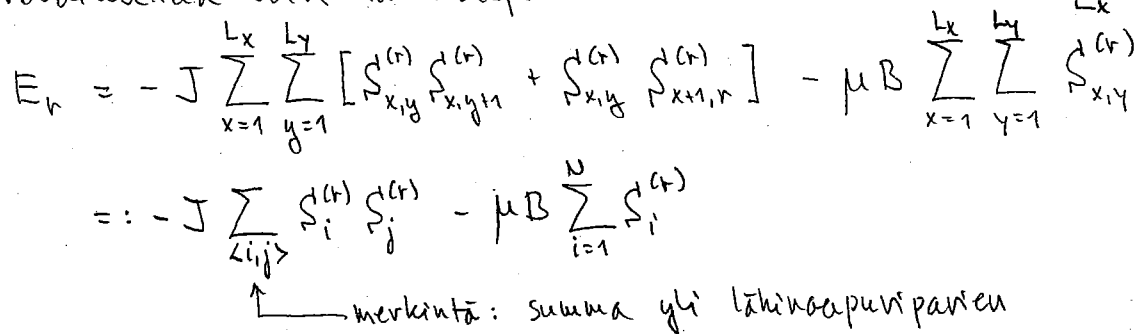 E_r = - J \sum_{x=1}^{L_x} \sum_{y=1}^{L_y} [ S_{x,y}^{(r)} S_{x,y+1}^{(r)} + S_{x,y}^{(r)} S_{x+1,r}^{(r)} ] - μB \sum_{x=1}^{L_x} \sum_{y=1}^{L_y} S_{x,y}^{(r)}
=: - J \sum_{<i,j>} S_i^{(r)} S_j^{(r)} - μB \sum_{i=1}^{N} S_i^{(r)}
merkintä: summa yli lähinaapuriparien